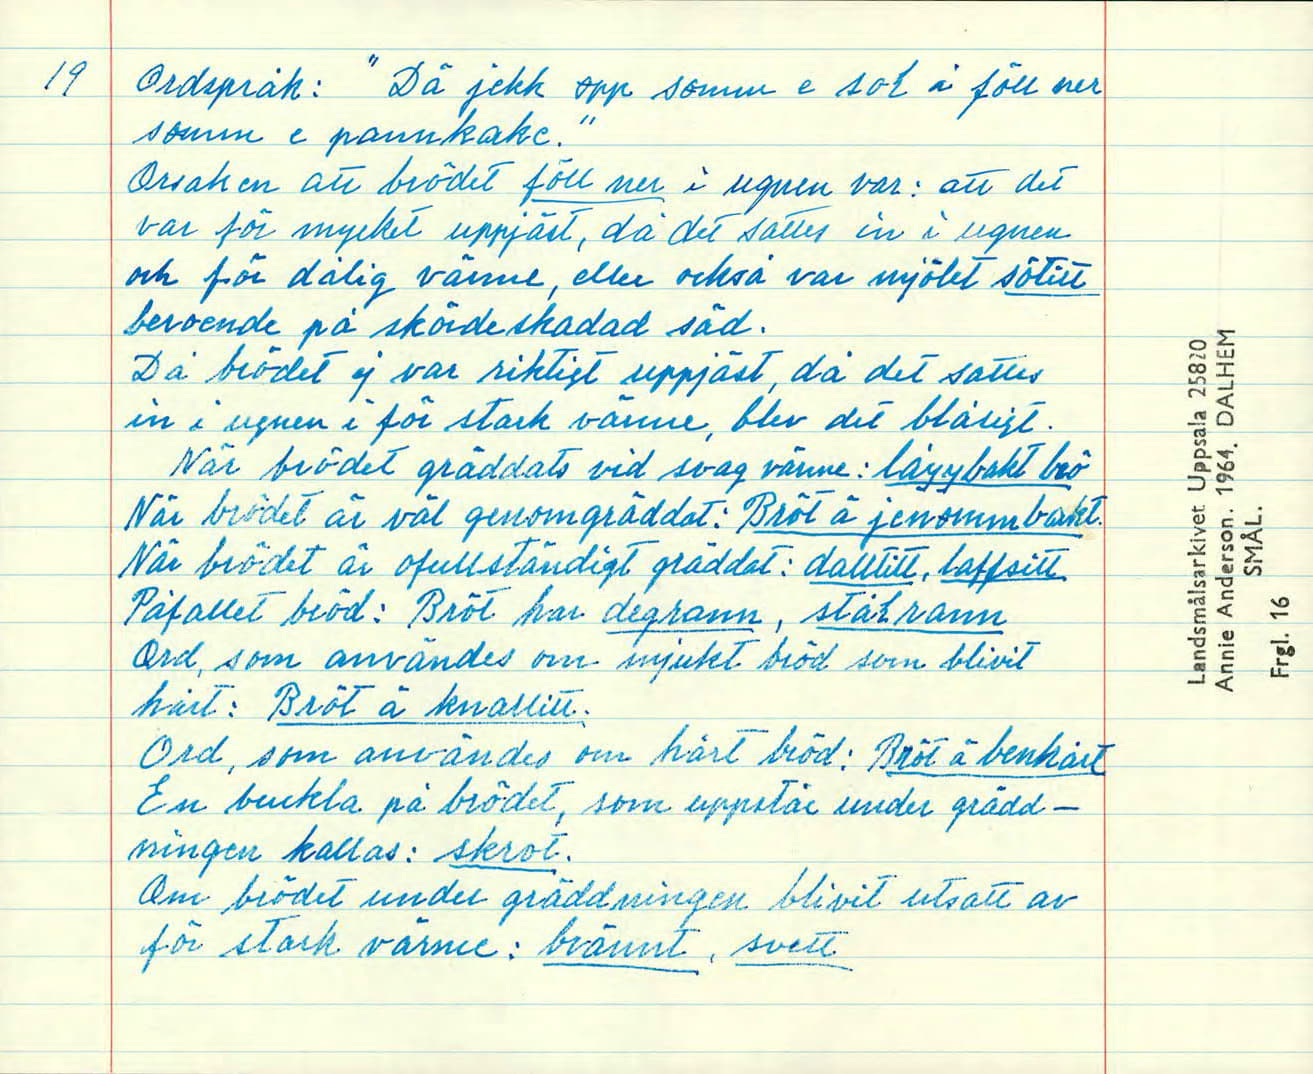 19 Ordspråk: "Dä jekk opp somm e sol å föll ner
somm e pannkake."
Orsaken att brödet föll ner i ugnen var: att det
var för mycket uppjäst, då det sattes in i ugnen
och för dålig värme, eller också var mjölet sötitt
beroende på skördeskadad säd.
Då brödet ej var riktigt uppjäst, då det sattes
in i ugnen i för stark värme, blev det blåsigt.
När brödet gräddats vid svag värme: låyybakt brö
När brödet är väl genomgräddat: Bröt ä jenommbakt.
När brödet är ofullständigt gräddat: dalltitt, laffsitt
Påfallet bröd: Bröt har degrann, stålrann
Ord, som användes om mjukt bröd som blivit
hårt: Bröt ä knallitt.
Ord, som användes om hårt bröd: Bröt ä benhårt
En buckla på brödet, som uppstår under grädd-
ningen kallas: skrot.
Om brödet under gräddningen blivit utsatt av
för stark värme: brännt, svett
Landsmålsarkivet Uppsala 25820
Annie Anderson. 1964. DALHEM
SMÅL.
Frgl. 16